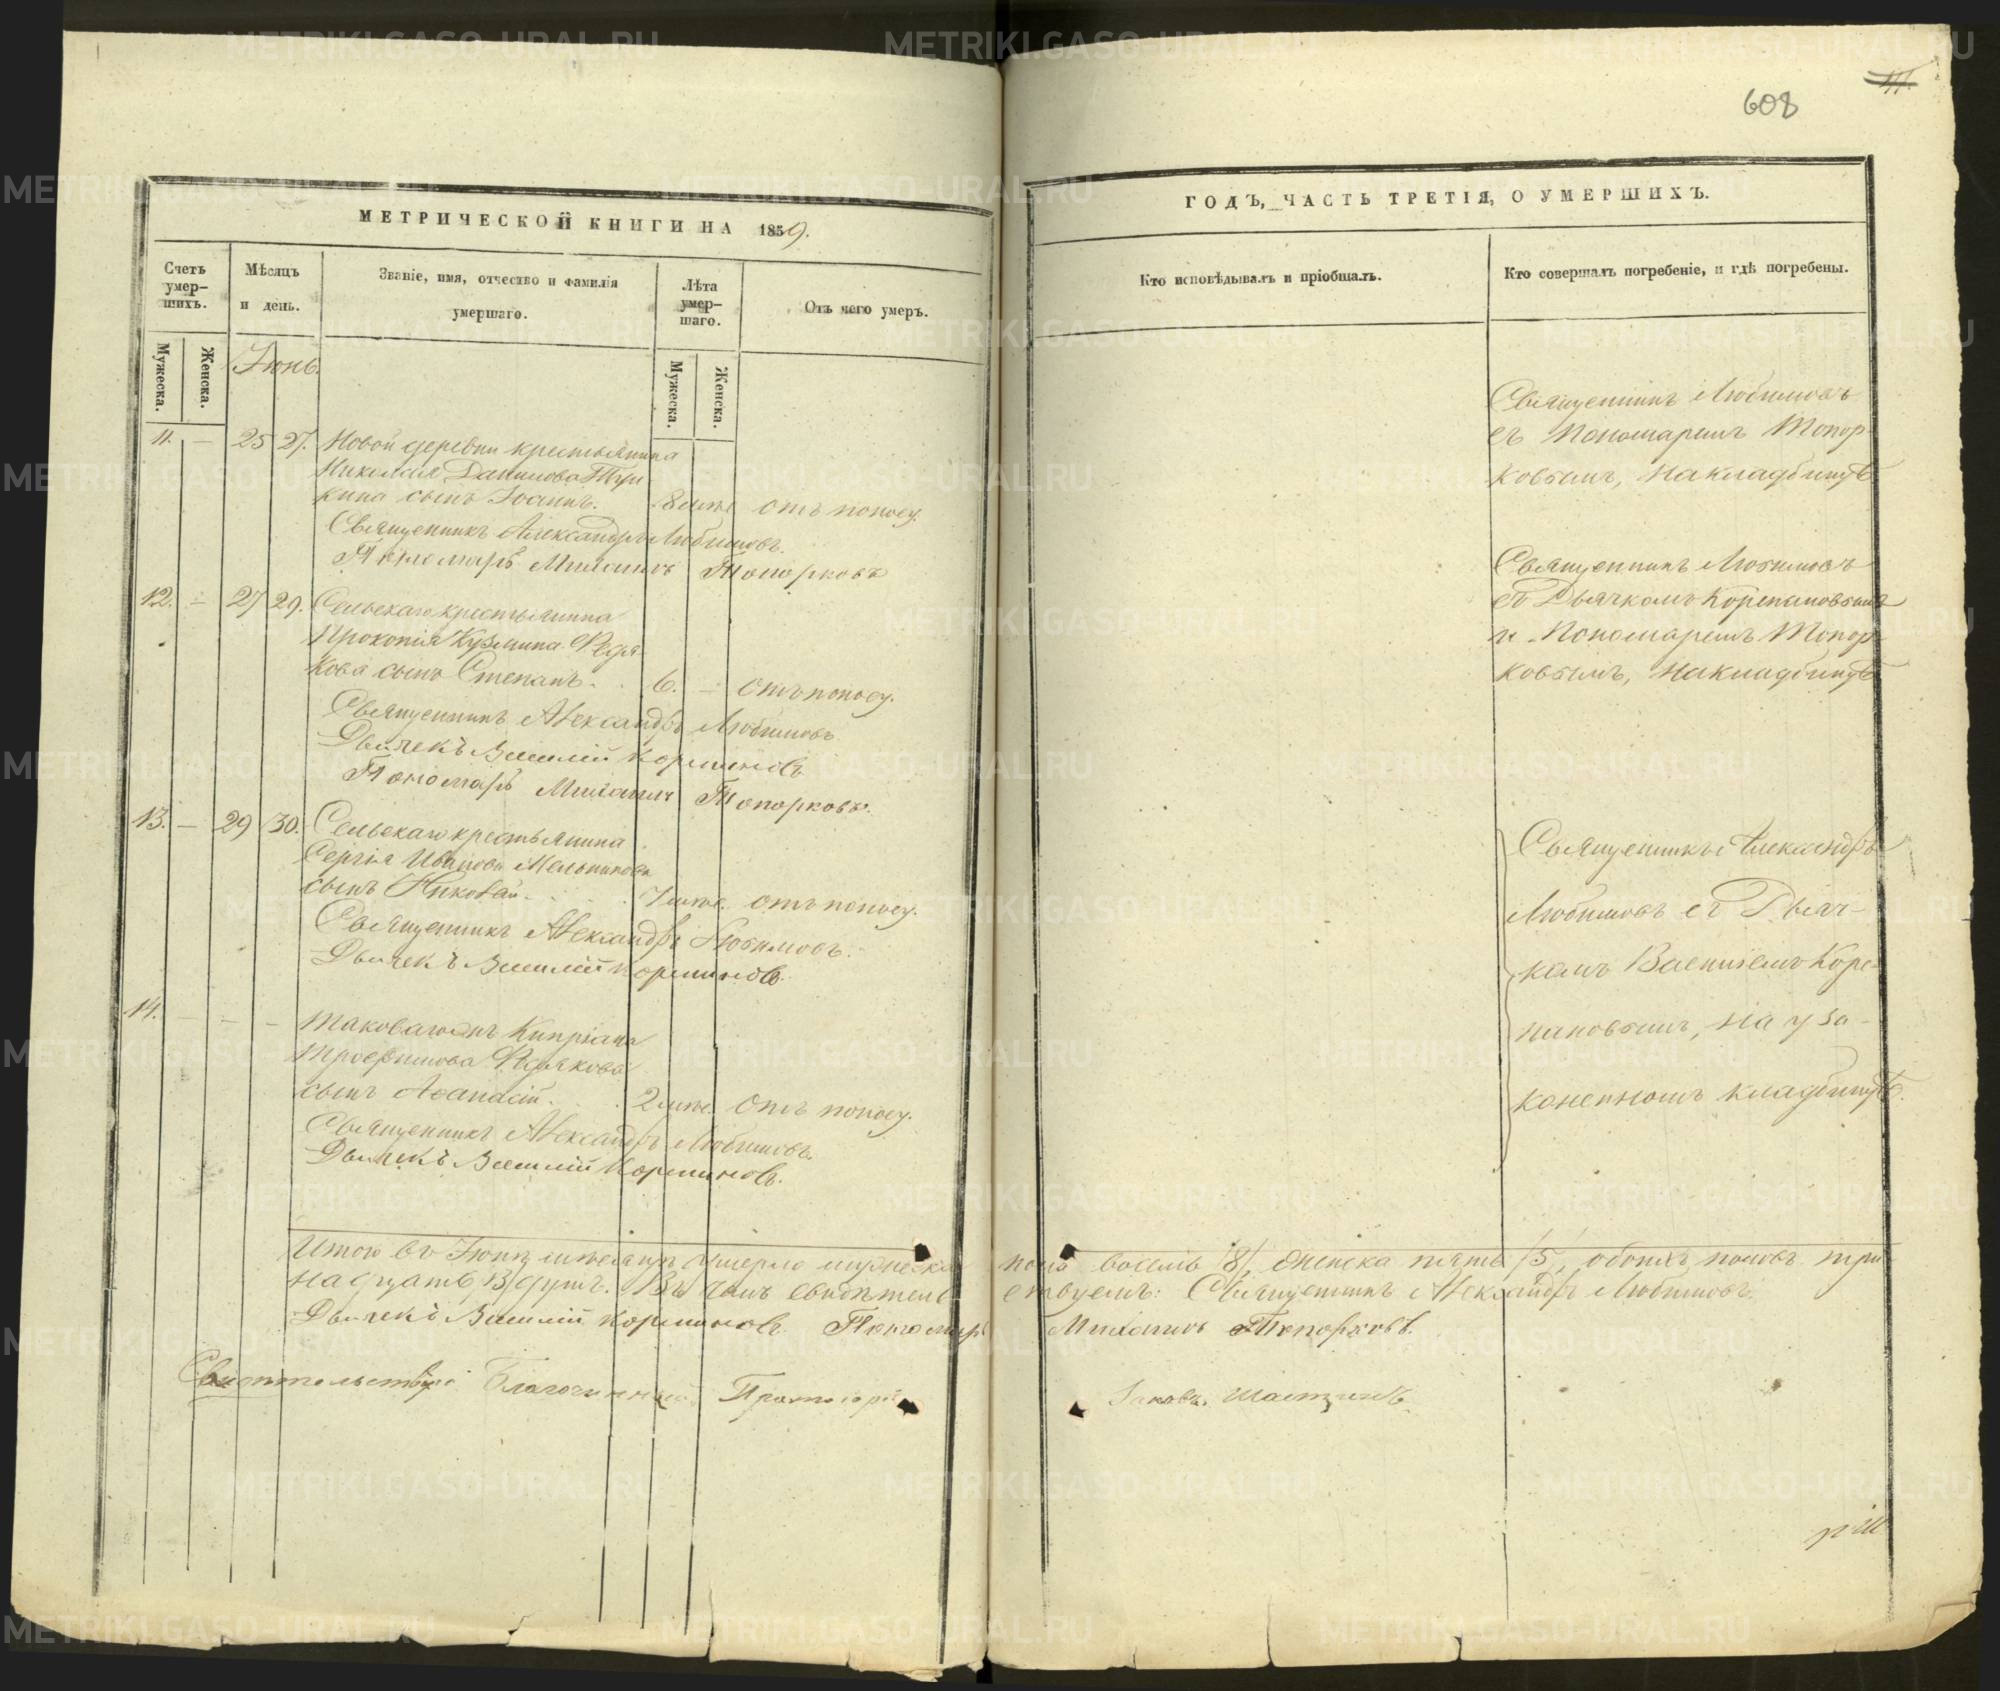 608
МЕТРИЧЕСКОЙ КНИГИ НА 1859.
ГОДЪ, ЧАСТЬ ТРЕТІЯ, О УМЕРШИХЪ.
Счетъ умер-
шихъ.
Мѣсяцъ
и день.
Званіе, имя, отчество и фамилія
умершаго.
Лѣта
умер-
шаго.
Отъ чего умеръ.
Кто исповѣдывалъ и пріобщалъ.
Кто совершалъ погребеніе, и гдѣ погребены.
Мужеска.
Женска.
Іюнь.
Мужеска.
Женска.
11. — 25 27. Новой деревни крестьянина
Николая Данилова
кина сынъ Іоаннъ. 8 мѣс. отъ поносу.
Священникъ Александръ Любимовъ.
Пономарь Михаилъ Топорковъ
Священникъ Любимовъ
съ Пономаремъ Топор-
ковымъ, на кладбищѣ
12. — 27 29. Сельскаго крестьянина
Прокопія Кузмина Федя
кова сынъ Степанъ. 6. — отъ поносу.
Священникъ Александръ Любимовъ
Дьячекъ Василій Корепановъ
Пономарь Михаилъ Топорковъ.
Священникъ Любимовъ
съ Дьячкомъ Корепановымъ
и Пономаремъ Топор-
ковымъ, на кладбищѣ
13. — 29 30. Сельскаго крестьянина
Сергія Иванова Мельникова
сынъ Николай. 7 мѣс. отъ поносу.
Священникъ Александръ Любимовъ.
Дьячекъ Василій Корепановъ.
14. — — — Таковагожъ Кипріана
Трофимова Федякова
сынъ Аѳанасій. 2 мѣс. отъ поносу.
Священникъ Александръ Любимовъ.
Дьячекъ Василій Корепановъ.
Священникъ Александръ
Любимовъ съ Дьяч-
комъ Василіемъ Коре-
пановымъ, на уза-
коненномъ кладбищѣ.
Итого въ Іюнѣ мѣсяцѣ умерло мужеска пола восемь /8/, женска пять /5/, обоихъ половъ три-
надцать 13 душъ. Въ чемъ свидѣтель-ствуемъ: Священникъ Александръ Любимовъ.
Дьячекъ Василій Корепановъ. Пономарь Михаилъ Топорковъ.
Благочинный Протоіерей Іаковъ
METRIKI.GASO-URAL.RU